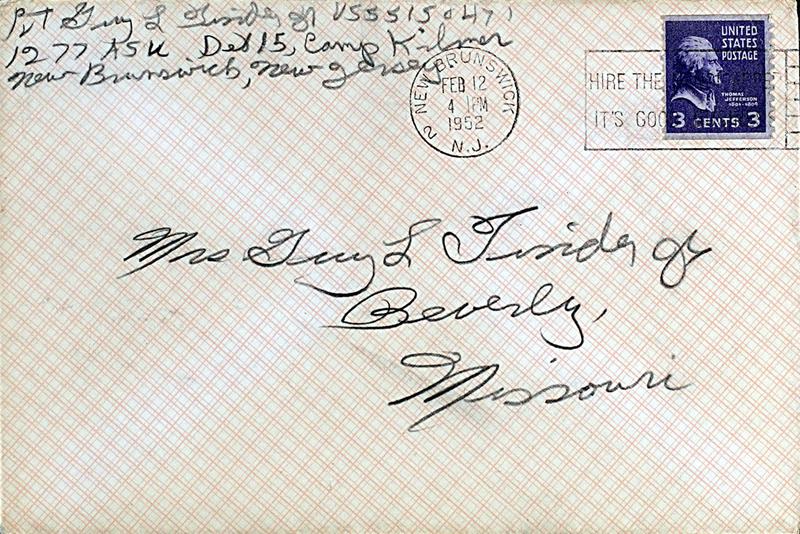 Pvt Guy L Jr US55150471
1277 ASU Det 15, Camp Kilmer
New Brunswick, New Jersey
NEW BRUNSWICK
FEB 12
4 PM
1952
2 N.J.
HIRE THE
IT'S GOO
UNITED
STATES
POSTAGE
THOMAS
JEFFERSON
1801-1809
3 CENTS 3
Mrs Guy L Jr
Beverly,
Missouri